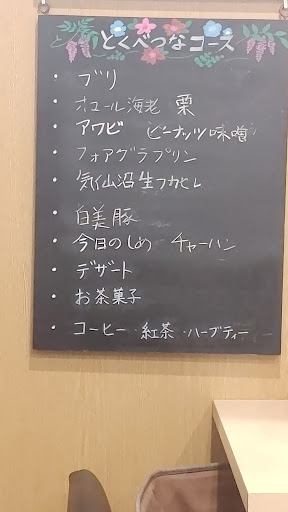 とくべつなコース
・ブリ
・オマール海老 栗
・アワビ ピーナッツ味噌
・フォアグラプリン
・気仙沼生フカヒレ
・白美豚
・今日のしめ チャーハン
・デザート
・お茶菓子
・コーヒー・紅茶・ハーブティー